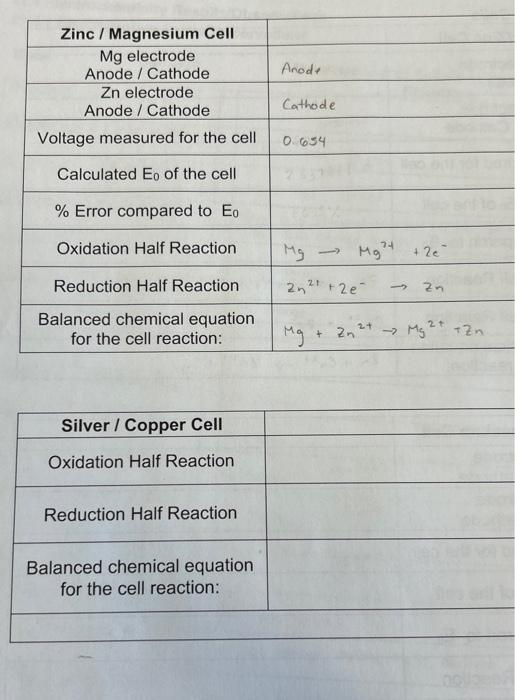 Zinc / Magnesium Cell
Mg electrode
Anode / Cathode
Anode
Zn electrode
Anode / Cathode
Cathode
Voltage measured for the cell
0.654
Calculated E₀ of the cell
% Error compared to E₀
Oxidation Half Reaction
Mg → Mg²⁺ + 2e⁻
Reduction Half Reaction
Zn²⁺ + 2e⁻ → Zn
Balanced chemical equation
for the cell reaction:
Mg + Zn²⁺ → Mg²⁺ + Zn
Silver / Copper Cell
Oxidation Half Reaction
Reduction Half Reaction
Balanced chemical equation
for the cell reaction: